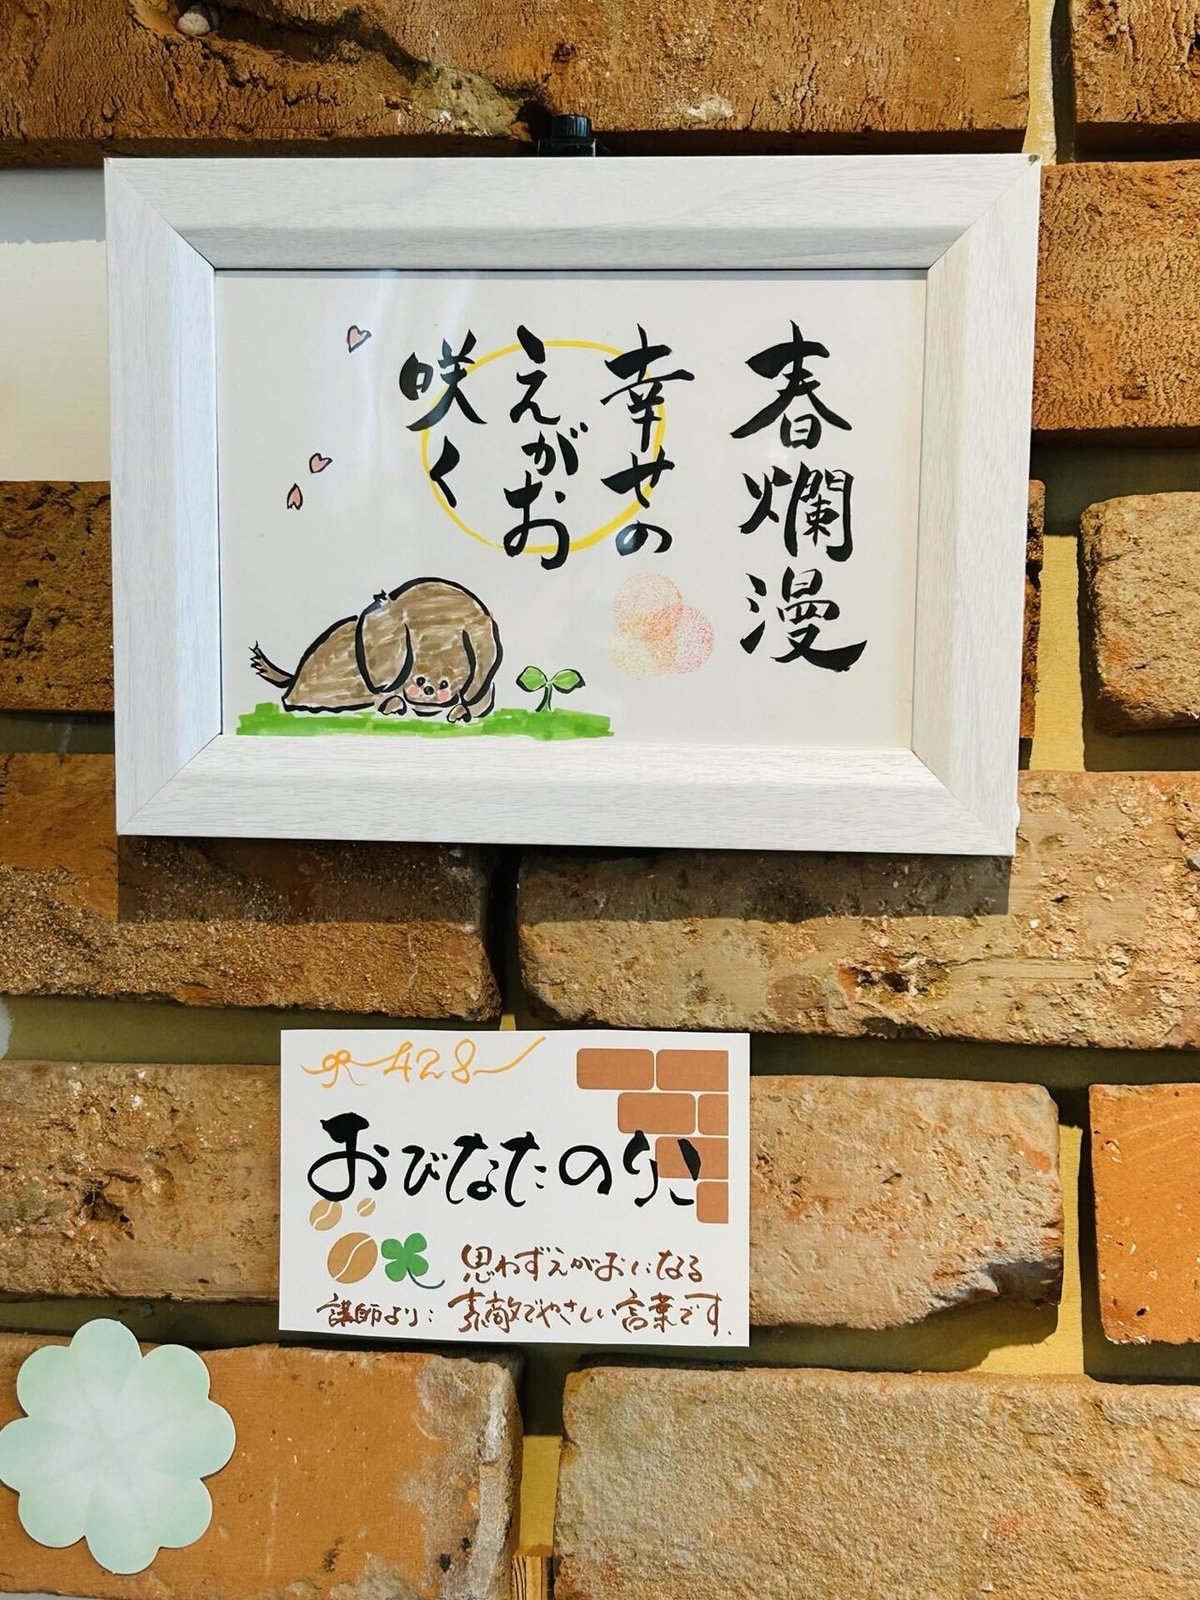 春爛漫
幸せの
えがお
咲く
428
おびなたのりこ
思わずえがおになる
講師より: 素敵でやさしい言葉です.